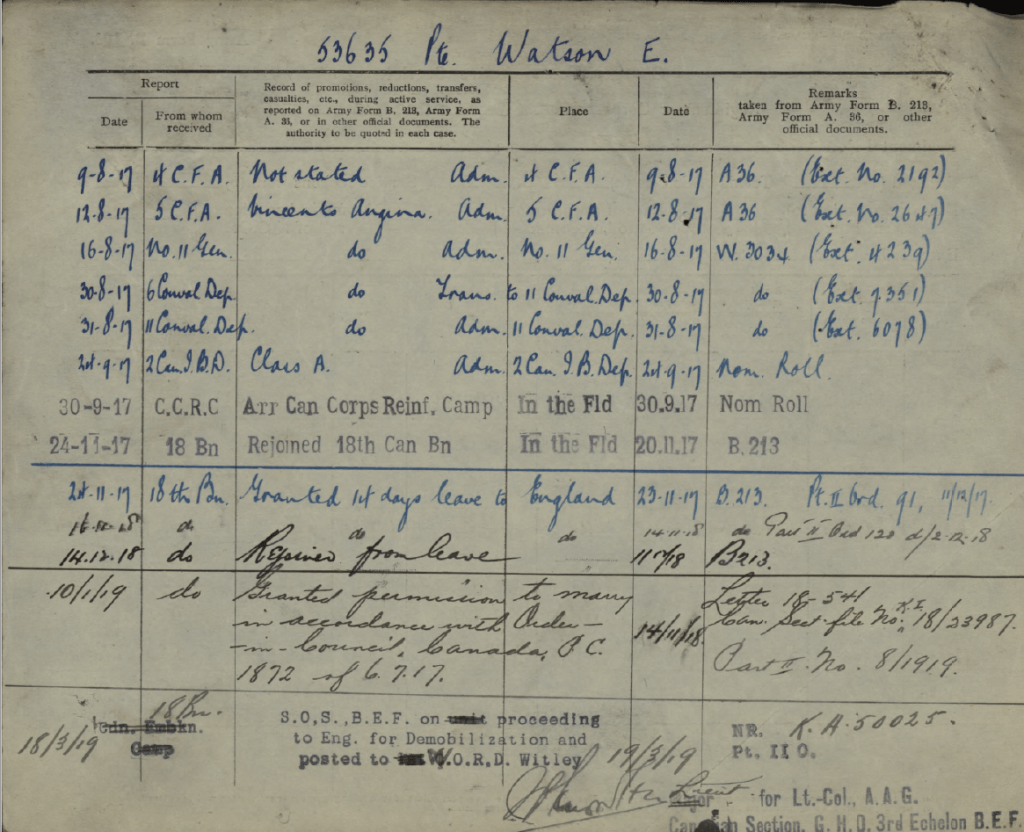 53635 Pte. Watson E.
Report
Date
From whom received
Record of promotions, reductions, transfers,
casualties, etc., during active service, as
reported on Army Form B. 213, Army Form
A. 36, or in other official documents. The
authority to be quoted in each case.
Place
Date
Remarks
taken from Army Form B. 213,
Army Form A. 36, or other
official documents.
9-8-17 4 C.F.A. Not stated Adm. 4 C.F.A. 9-8-17 A36. (Ext. No. 2192)
12-8-17 5 C.F.A. Vincents Angina. Adm. 5 C.F.A. 12-8-17 A36 (Ext. No. 2647)
16-8-17 No. 11 Gen. do Adm. No. 11 Gen. 16-8-17 W.3034 (Ext. 4239)
30-8-17 6 Conval Dep. do Trans. to 11 Conval. Dep. 30-8-17 do (Ext. 7351)
31-8-17 11 Conval. Dep. do Adm. 11 Conval. Dep. 31-8-17 do (Ext. 6078)
24-9-17 2 Can. I.B.D. Class A. Adm. 2 Can. I.B. Dep. 24-9-17 Nom. Roll.
30-9-17 C.C.R.C Arr Can Corps Reinf. Camp In the Fld 30.9.17 Nom Roll
24-11-17 18 Bn Rejoined 18th Can Bn In the Fld 20.11.17 B.213
24-11-17 18th Bn. Granted 14 days leave to England 23-11-17 B.213. Pt. II Ord. 91, 11/12/17.
do do do 14-11-18 do Part II Ord 120 d/2-12-18
14.12.18 do Rejoined from leave B213.
10/1/19 do Granted permission to marry
in accordance with Order-
-in-Council, Canada, P.C.
1872 of 6.7.17.
14/11/18.
Letter 18-541
Can. Sect. file No. K.I. 18/23987.
Part II. No. 8/1919.
18 Bn.
Cdn. Embkn.
Camp
18/3/19
S.O.S., B.E.F. on unit proceeding
to Eng. for Demobilization and
posted to W.O.R.D. Witley
19/3/19
NR. K.A.50025.
Pt. II O.
Lieut
Major for Lt.-Col., A.A.G.
Canadian Section, G.H.Q. 3rd Echelon B.E.F.